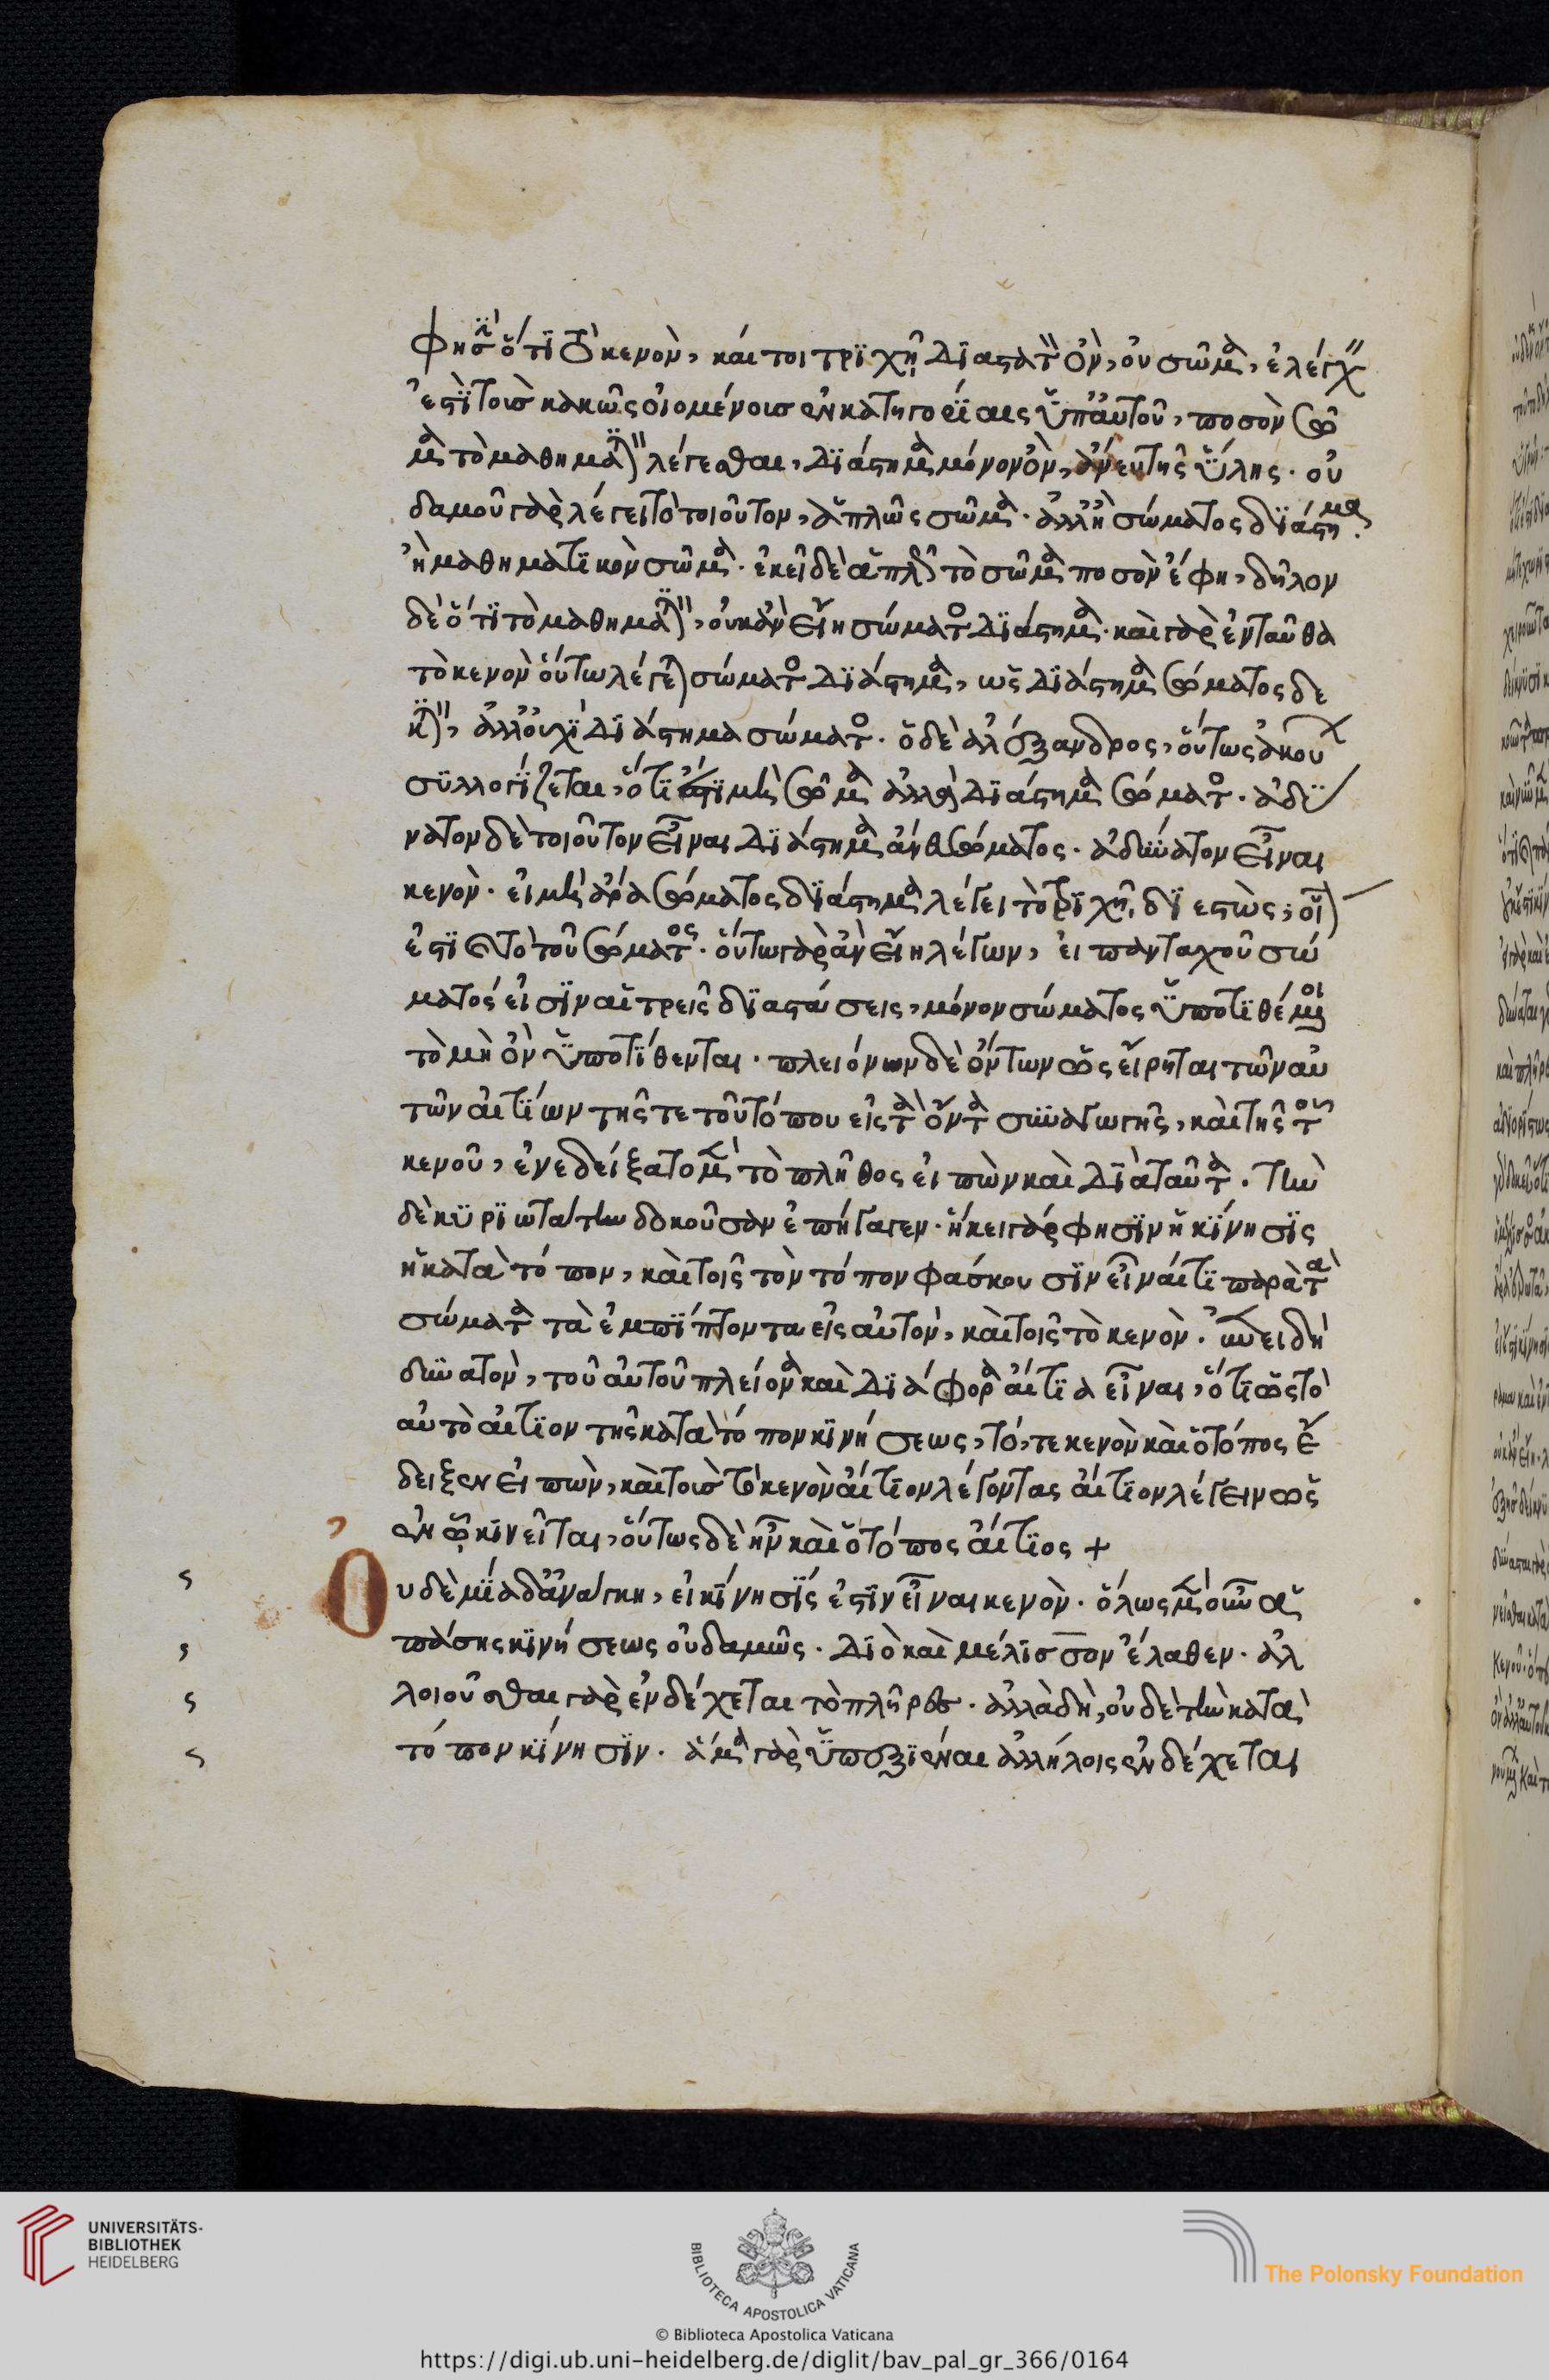 φησὶν ὅτι τὸ κενὸν, καίτοι τριχῇ διαστατὸν ὂν, οὐ σῶμα, ἐλέγχει
ἐστὶ τοῖς κακῶς οἰομένοις ἐν κατηγορίαις ὑπ' αὐτοῦ, ποσὸν σῶ
μα τὸ μαθηματικὸν λέγεσθαι, διάστημα μόνον ὂν, ἄνευ τῆς ὕλης. οὐ
δαμοῦ γὰρ λέγει τὸ τοιοῦτον, ἁπλῶς σῶμα. ἀλλ' ἢ σώματος διάστημα.
ἢ μαθηματικὸν σῶμα. ἐκεῖ δὲ ἁπλῶς τὸ σῶμα ποσὸν ἔφη, δῆλον
δὲ ὅτι τὸ μαθηματικὸν, οὐκ ἂν εἴη σώματος διάστημα. καὶ γὰρ ἐνταῦθα
τὸ κενὸν οὕτω λέγεται σώματος διάστημα, ὡς διάστημα σώματος δε
κτικὸν, ἀλλ' οὐχὶ διάστημα σώματος. ὁ δὲ ἀλέξανδρος, οὕτως ἀκού
συλλογίζεται, ὅτι ἔστι μὲν σῶμα ἀλλὰ διάστημα σώματος. ἀδύ
νατον δὲ τοιοῦτον εἶναι διάστημα ἄνευ σώματος. ἀδύνατον εἶναι
κενὸν. εἰ μὲν ἄρα σώματος διάστημα λέγει τὸ τριχῇ διεστὼς,
ἐστὶ τὸ τοῦ σώματος. οὕτω γὰρ ἂν εἴη λέγων, εἰ πανταχοῦ σώ
ματος εἰσὶν αἱ τρεῖς διαστάσεις, μόνον σώματος ὑποτιθέμενοι
τὸ μὴ ὂν ὑποτίθενται. πλειόνων δὲ ὄντων ὡς εἴρηται τῶν αὐ
τῶν αἰτίων τῆς τε τοῦ τόπου εἰς τὰ ὄντα συναγωγῆς, καὶ τῆς τοῦ
κενοῦ, ἐνεδείξατο μὲν τὸ πλῆθος εἰπὼν καὶ διὰ ταῦτα. τὴν
δὲ κυριωτάτην δοκοῦσαν ἐπήγαγεν. ἥκει γάρ φησιν ἡ κίνησις
ἡ κατὰ τόπον, καὶ τοῖς τὸν τόπον φάσκουσιν εἶναί τι παρὰ τὰ
σώματα τὰ ἐμπίπτοντα εἰς αὐτὸν, καὶ τοῖς τὸ κενὸν. ἐπειδὴ
δυνατὸν, τοῦ αὐτοῦ πλείονα καὶ διάφορα αἴτια εἶναι, ὅτι ὡς τὸ
αὐτὸ αἴτιον τῆς κατὰ τόπον κινήσεως, τό, τε κενὸν καὶ ὁ τόπος ἔ
δειξεν εἰπὼν, καὶ τοὺς τὸ κενὸν αἴτιον λέγοντας αἴτιον λέγειν ὡς
ἐν ᾧ κινεῖται, οὕτως δὲ ἦν καὶ ὁ τόπος αἴτιος +
Οὐδὲ μία δ' ἀνάγκη, εἰ κίνησίς ἐστιν εἶναι κενὸν. ὅλως μὲν οὖν ὡς
πάσης κινήσεως οὐδαμῶς. διὸ καὶ μέλισσον ἔλαθεν. ἀλ
λοιοῦσθαι γὰρ ἐνδέχεται τὸ πλῆρες. ἀλλὰ δὴ, οὐδὲ τὴν κατὰ
τόπον κίνησιν. ἅμα γὰρ ὑπεξιέναι ἀλλήλοις ἐνδέχεται
UNIVERSITÄTS-
BIBLIOTHEK
HEIDELBERG
BIBLIOTECA APOSTOLICA VATICANA
The Polonsky Foundation
© Biblioteca Apostolica Vaticana
https://digi.ub.uni-heidelberg.de/diglit/bav_pal_gr_366/0164